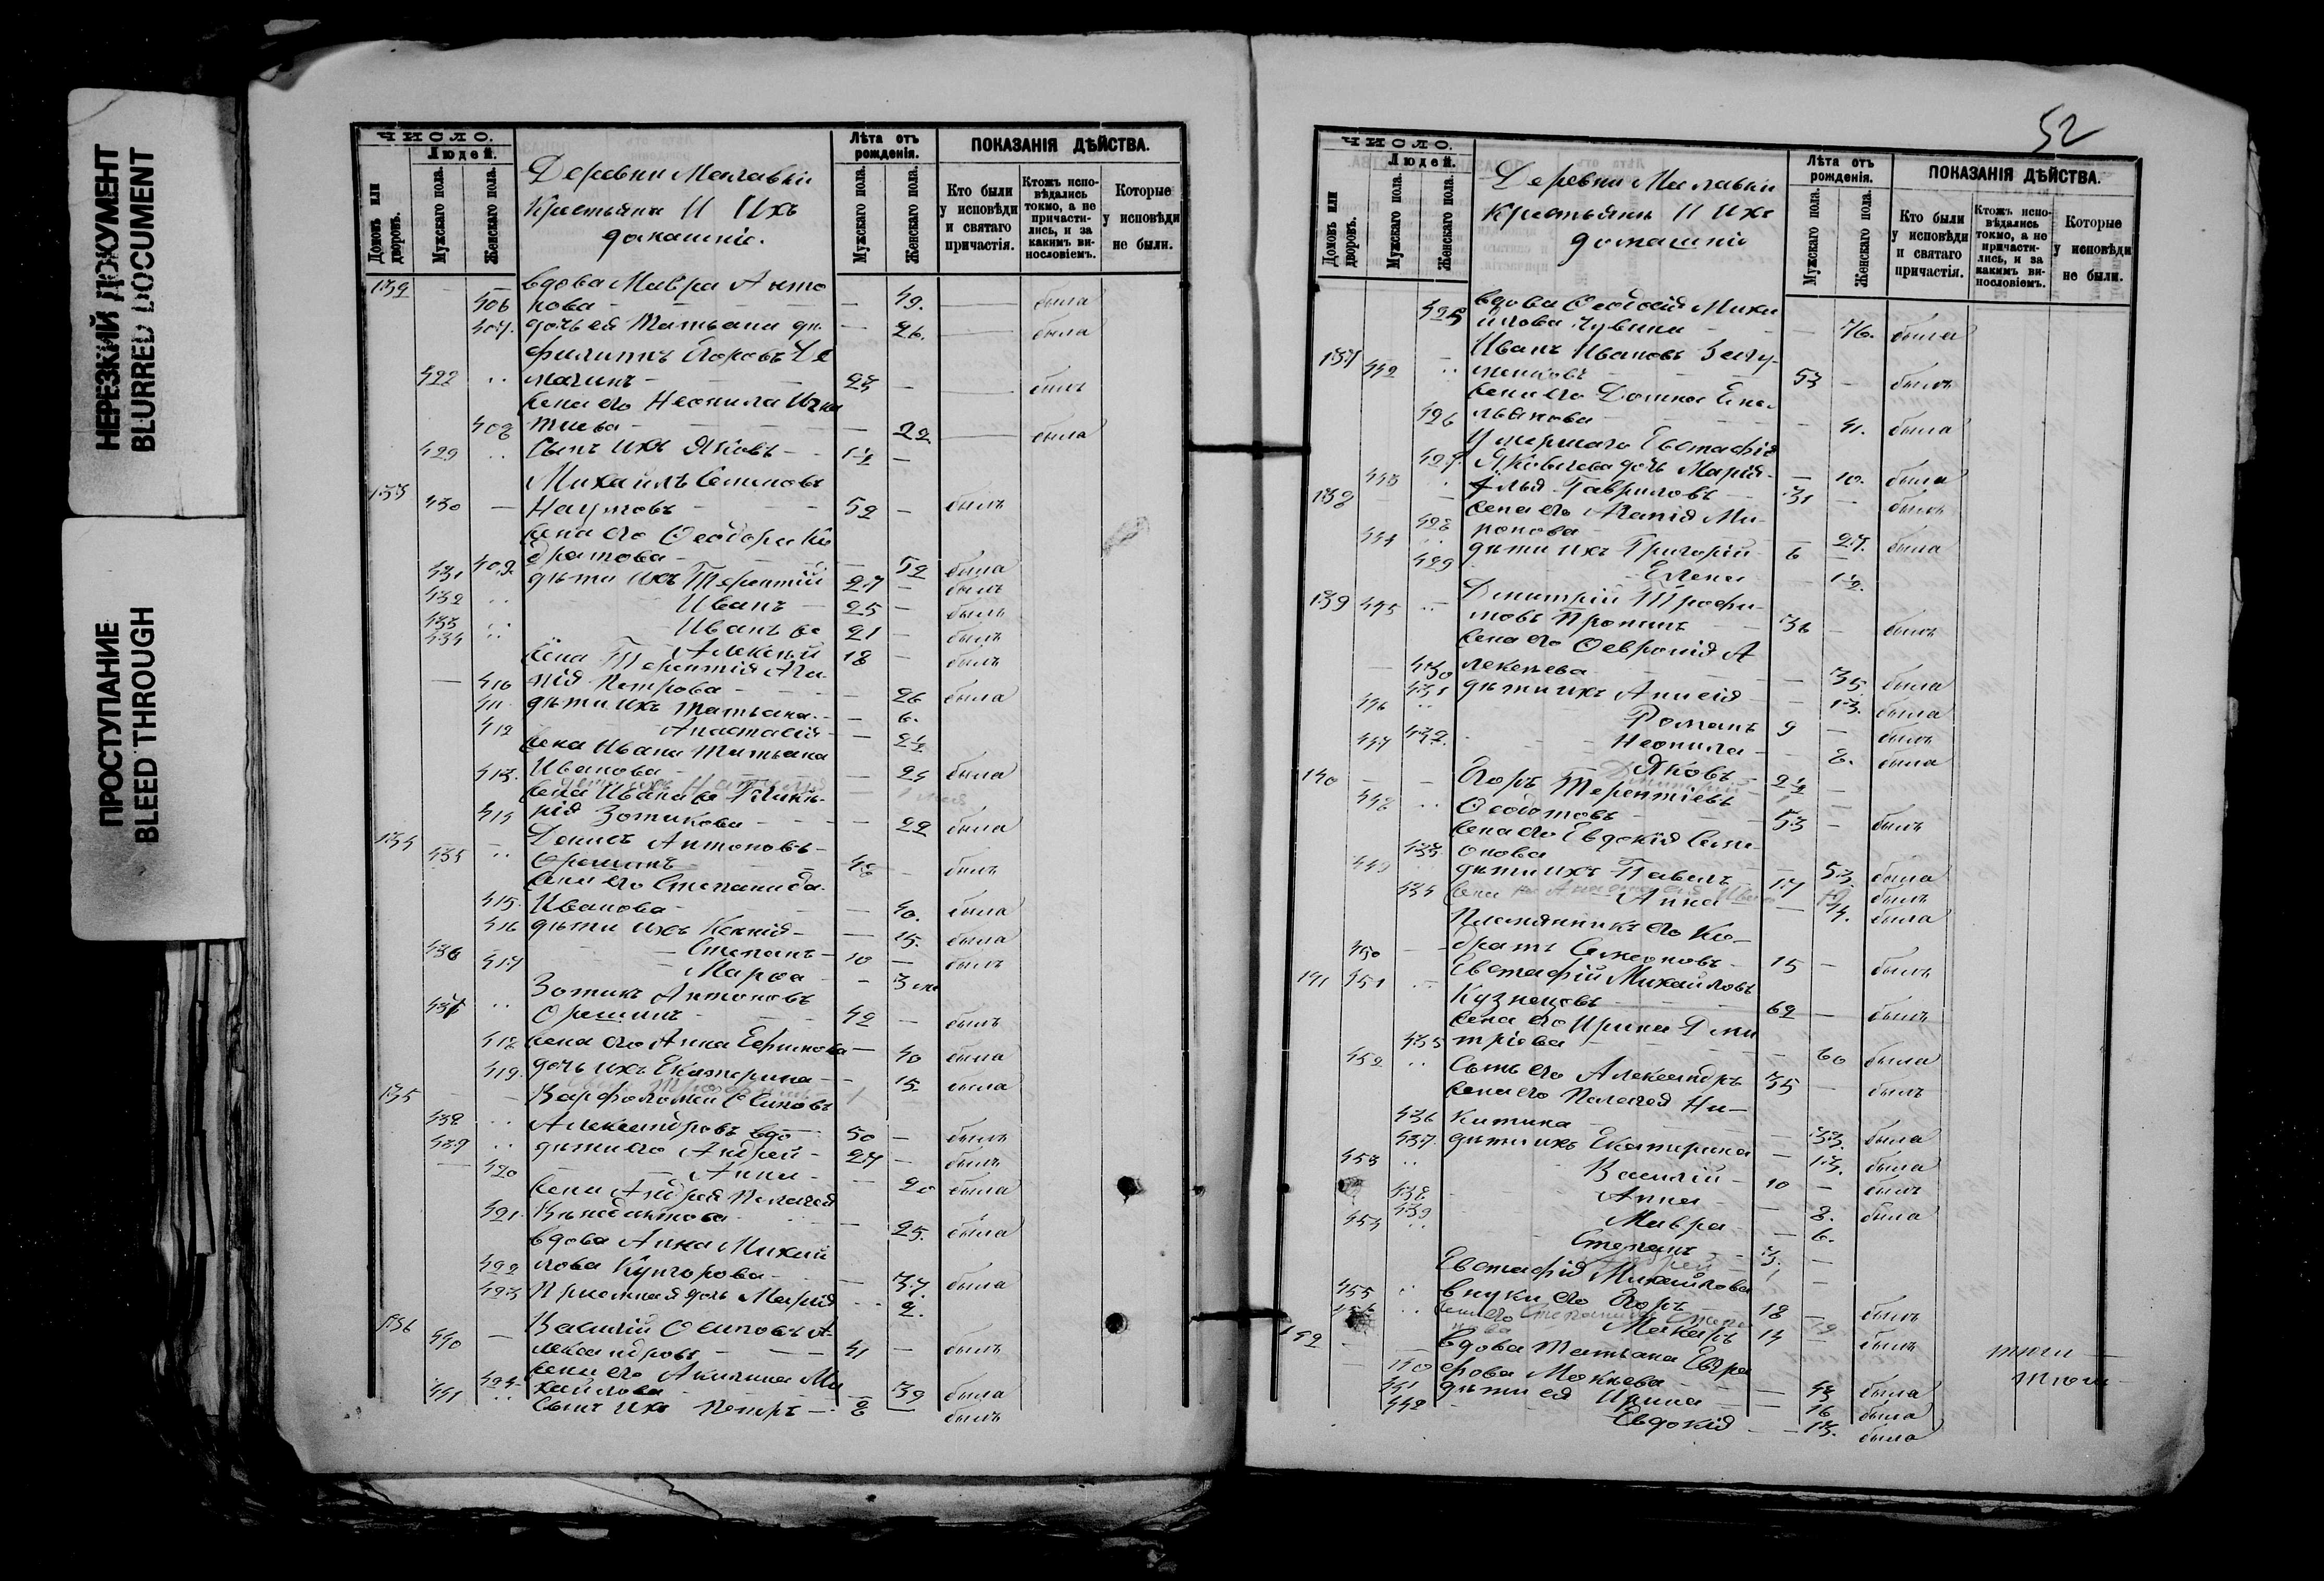 НЕРЕЗКИЙ ДОКУМЕНТ
BLURRED DOCUMENT
ПРОСТУПАНИЕ
BLEED THROUGH
ЧИСЛО.
Людей.
Домовъ или дворовъ.
Мужскаго пола.
Женскаго пола.
Деревни
Крестьяне и ихъ
домашніе.
Лѣта отъ рожденія.
Мужскаго пола.
Женскаго пола.
ПОКАЗАНІЯ ДѢЙСТВА.
Кто были у исповѣди и святаго причастія.
Ктожъ исповѣдались токмо, а не причастились, и за какимъ винословіемъ.
Которые у исповѣди не были.
132 вдова Мавра Анто
406 нова 49. была
407. дочь ея Татьяна 26. была
Филиппъ Егоровъ
422 23 былъ
жена его Неонила Игна
408 тиева 22 была
429 Сынъ ихъ Яковъ 1½
133 Михаилъ
430 Наумовъ 52 былъ
жена его Ѳеодора Ко
409. дратова 52 была
431 дѣти ихъ Терентій 27 былъ
432 Иванъ 25 былъ
433 Иванъ же 21 былъ
434 Алексѣй 18 былъ
жена Терентія Ага
410 пія Петрова 26 была
411 дѣти ихъ Татьяна 6.
412 Анастасія 2½
жена Ивана Татьяна
413. Иванова 25 была
жена Ивана же
414 рія Зотикова 22 была
134 Денисъ Антоновъ
435 Орешинъ 48 былъ
жена его Степанида
415. Иванова 40. была
416 дѣти ихъ Ксенія 15. была
436 Степанъ 10 былъ
417 Марѳа 3 ме
Зотикъ Антоновъ
437 Орешинъ 42 былъ
418 жена его Анна Ефимова 40 была
419. дочь ихъ Екатерина 15. была
135 Варфоломей Осиповъ
438 Александровъ вдо 50 былъ
439 дѣти его Андрей 27 былъ
420 Анна 20 была
жена Андрея Пелагея
421. 25. была
вдова Анна Михаи
422 лова 37. была
423 дочь Марія 2.
136 Василій Осиповъ А
440 лександровъ 41 былъ
жена его Акилина Ми
424. хайлова 39 была
441 Сынъ ихъ Петръ 8 былъ
52
ЧИСЛО.
Людей.
Домовъ или дворовъ.
Мужскаго пола.
Женскаго пола.
Деревни
Крестьяне и ихъ
домашніе
Лѣта отъ рожденія.
Мужскаго пола.
Женскаго пола.
ПОКАЗАНІЯ ДѢЙСТВА.
Кто были у исповѣди и святаго причастія.
Ктожъ исповѣдались токмо, а не причастились, и за какимъ винословіемъ.
Которые у исповѣди не были.
вдова Ѳеодосія Михаи
425 илова 76. была
137 Иванъ Ивановъ
442 53 былъ
жена его Домна Еме
426 льянова 41. была
Умершаго Евстафія
427. Яковлева дочь Марія 10. была
443
138 Илья Гавриловъ 31 былъ
жена его Агапія Ми
428 ронова 27. была
444 дѣти ихъ Григорій 6
429 Елена 1½.
139 445 Дмитрій Трофи
мовъ Пронинъ 36 былъ
жена его Ѳевронія А
430 лексѣева 35. была
431 дѣти ихъ Анисія 13. была
446 Романъ 9 былъ
432. Неонила 8. была
447 Яковъ 2½
140 Егоръ Терентіевъ
448 53 былъ
жена его Евдокія Симе
433 онова 53. была
449 дѣти ихъ Павелъ 17 былъ
434 Анна 14. была
Племянникъ его Ко
450 дратъ Симеоновъ 15 былъ
141 451 Евстафій Михайловъ
Кузнецовъ 62 былъ
жена его Ирина Дми
435 тріева 60 была
452 Сынъ его Александръ 35 былъ
жена его Пелагея Ни
436 китина 33. была
437. дѣти ихъ Екатерина 13. была
453 Василій 10 былъ
438. Анна 8. была
439 Мавра 6.
454 Степанъ 3.
Евстафія Михайлова
455 внуки его Егоръ 18 былъ
456 Макаръ 14 былъ
142 Вдова Татьяна
440 рова Мокѣева 43 была
441 дѣти ея Ирина 16 была
442 Евдокія 13. была